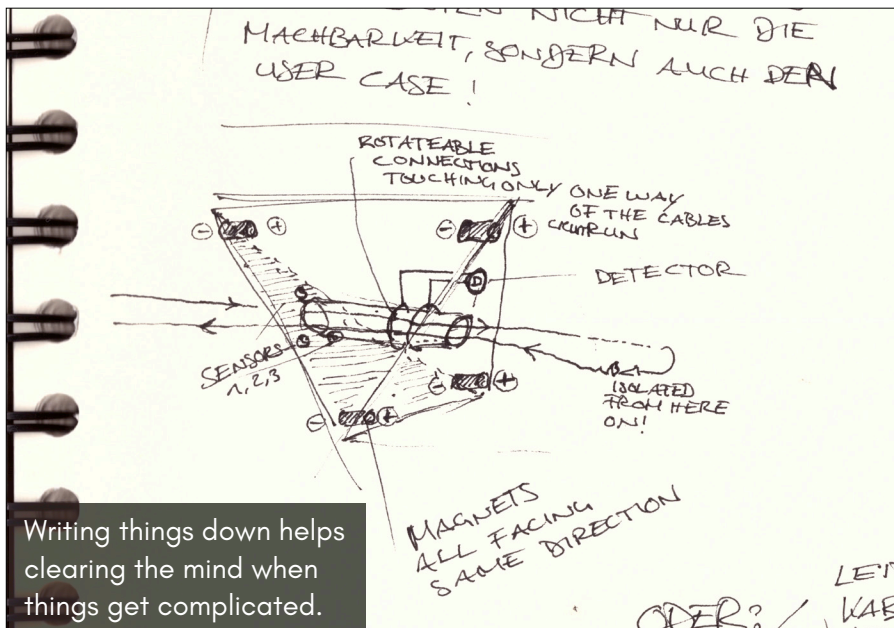 NICHT NUR DIE
MACHBARKEIT, SONDERN AUCH DEN
USER CASE!
ROTATEABLE
CONNECTIONS
TOUCHING ONLY ONE WAY
OF THE CABLES
RUN
- + - +
D
DETECTOR
SENSORS
1, 2, 3
- +
- +
ISOLATED
FROM HERE
ON!
MAGNETS
ALL FACING
SAME DIRECTION
ODER?
Writing things down helps
clearing the mind when
things get complicated.